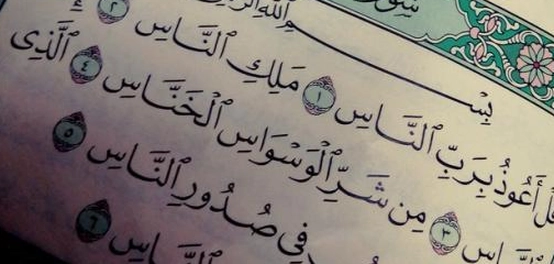 سُورَ
بِسْمِ ٱللَّهِ
أَعُوذُ بِرَبِّ ٱلنَّاسِ ١ مَلِكِ ٱلنَّاسِ ٢
ٱلنَّاسِ ٣ مِن شَرِّ ٱلْوَسْوَاسِ ٱلْخَنَّاسِ ٤ ٱلَّذِى
فِى صُدُورِ ٱلنَّاسِ ٥
ٱلنَّاسِ ٦